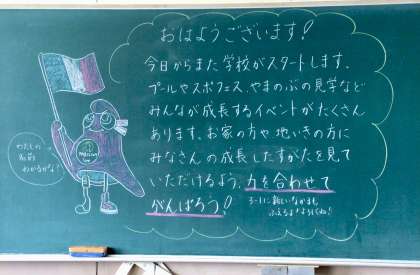 おはようございます!
今日からまた学校がスタートします。
プールやスポフェス、やまのぶの見学など
みんなが成長するイベントがたくさん
あります。お家の方や地いきの方に
みなさんの成長したすがたを見て
いただけるよう、力を合わせて
がんばろう!
3-1に新しいなかまも
ふえるよ!よろしくね!
わたしの
名前
わかるかな?